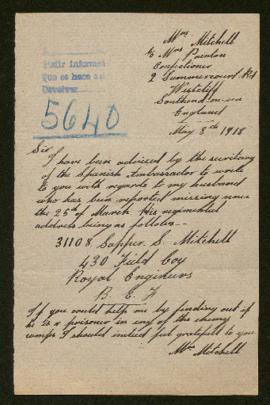 Mrs Mitchell
c/o Mrs Painton
Confectioner
2 Summercourt Rd
Westcliff
Southend-on-sea
England
May 8th 1918
Pedir informes
Que se hace a
Devolver
5640
Sir
I have been adviced by the secretary
of the Spanish Ambassador to write
to you with regards to my husband
who has been reported missing since
the 25th of March His regimental
address being as follows
31108 Sapper S. Mitchell
430 Field Coy
Royal Engineers
B. E. F
If you could help me by finding out if
he is a prisoner in any of the enemy
camps I should indeed feel grateful to you
Mrs Mitchell